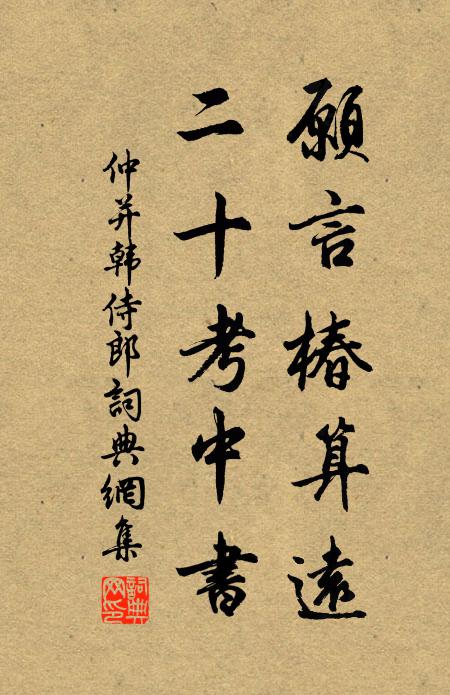 願言椿算遠
二十考中書
仲并韩侍郎詞典網集
詞典網印